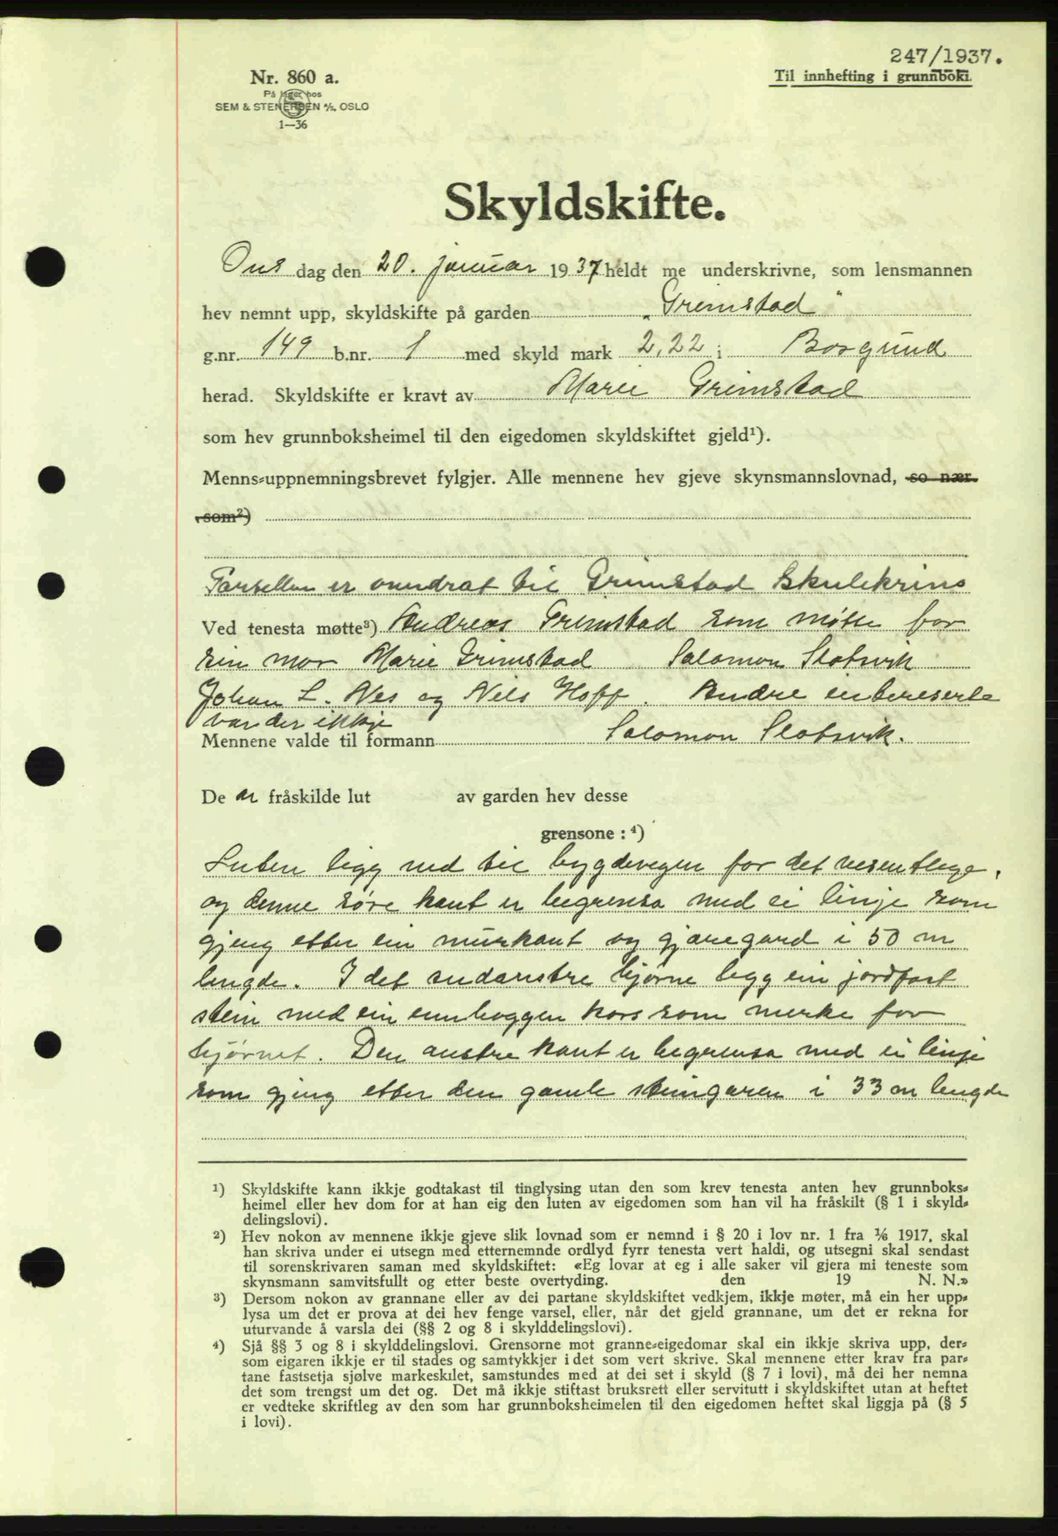 247/1937.
Til innhefting i grunnboki.
Nr. 860 a.
På lager hos
SEM & STENERSEN A/S, OSLO
1—36
Skyldskifte.
Ons dag den 20. januar 1937 heldt me underskrivne, som lensmannen
hev nemnt upp, skyldskifte på garden „Grimstad"
g.nr. 149 b.nr. 1 med skyld mark 2,22 i Borgund
herad. Skyldskifte er kravt av Marie Grimstad
som hev grunnboksheimel til den eigedomen skyldskiftet gjeld¹).
Menns-uppnemningsbrevet fylgjer. Alle mennene hev gjeve skynsmannslovnad, so nær
som²)
Parsellen er overdrat til Grimstad Skulekrins
Ved tenesta møtte³) Andreas Grimstad som møtte for
sin mor Marie Grimstad Salomon Slotsvik
Johan L. Nes og Nils Hoff. Andre intereserte
var der ikkje
Mennene valde til formann Salomon Slotsvik.
De n fråskilde lut av garden hev desse
grensone: ⁴)
Luten ligg ned til bygdevegen for det vesentlege,
og denne søre kant er begrensa med ei linje som
gjeng etter ein murkant og gjæregard i 50 m
lengde. I det sudaustre hjørne ligg ein jordfast
stein med ein innhoggen kors som merke for
hjørnet. Den austre kant er begrensa med ei linje
som gjeng etter den gamle steingaren i 33 m lengde
¹) Skyldskifte kann ikkje godtakast til tinglysing utan den som krev tenesta anten hev grunnboks-
heimel eller hev dom for at han eig den luten av eigedomen som han vil ha fråskilt (§ 1 i skyld-
delingslovi).
²) Hev nokon av mennene ikkje gjeve slik lovnad som er nemnd i § 20 i lov nr. 1 fra 1/6 1917, skal
han skriva under ei utsegn med etternemnde ordlyd fyrr tenesta vert haldi, og utsegni skal sendast
til sorenskrivaren saman med skyldskiftet: «Eg lovar at eg i alle saker vil gjera mi teneste som
skynsmann samvitsfullt og etter beste overtyding. den 19 N. N.»
³) Dersom nokon av grannane eller av dei partane skyldskiftet vedkjem, ikkje møter, må ein her upp-
lysa um det er prova at dei hev fenge varsel, eller, når det gjeld grannane, um det er rekna for
uturvande å varsla dei (§§ 2 og 8 i skylddelingslovi).
⁴) Sjå §§ 3 og 8 i skylddelingslovi. Grensorne mot granne-eigedomar skal ein ikkje skriva upp, der-
som eigaren ikkje er til stades og samtykkjer i det som vert skrive. Skal mennene etter krav fra par-
tane fastsetja sjølve markeskilet, samstundes med at dei set i skyld (§ 7 i lovi), må dei her nemna
det som trengst um det og. Det må ikkje stiftast bruksrett eller servitutt i skyldskiftet utan at heftet
er vedteke skriftleg av den som har grunnboksheimelen til den eigedomen heftet skal liggja på (§ 5
i lovi).